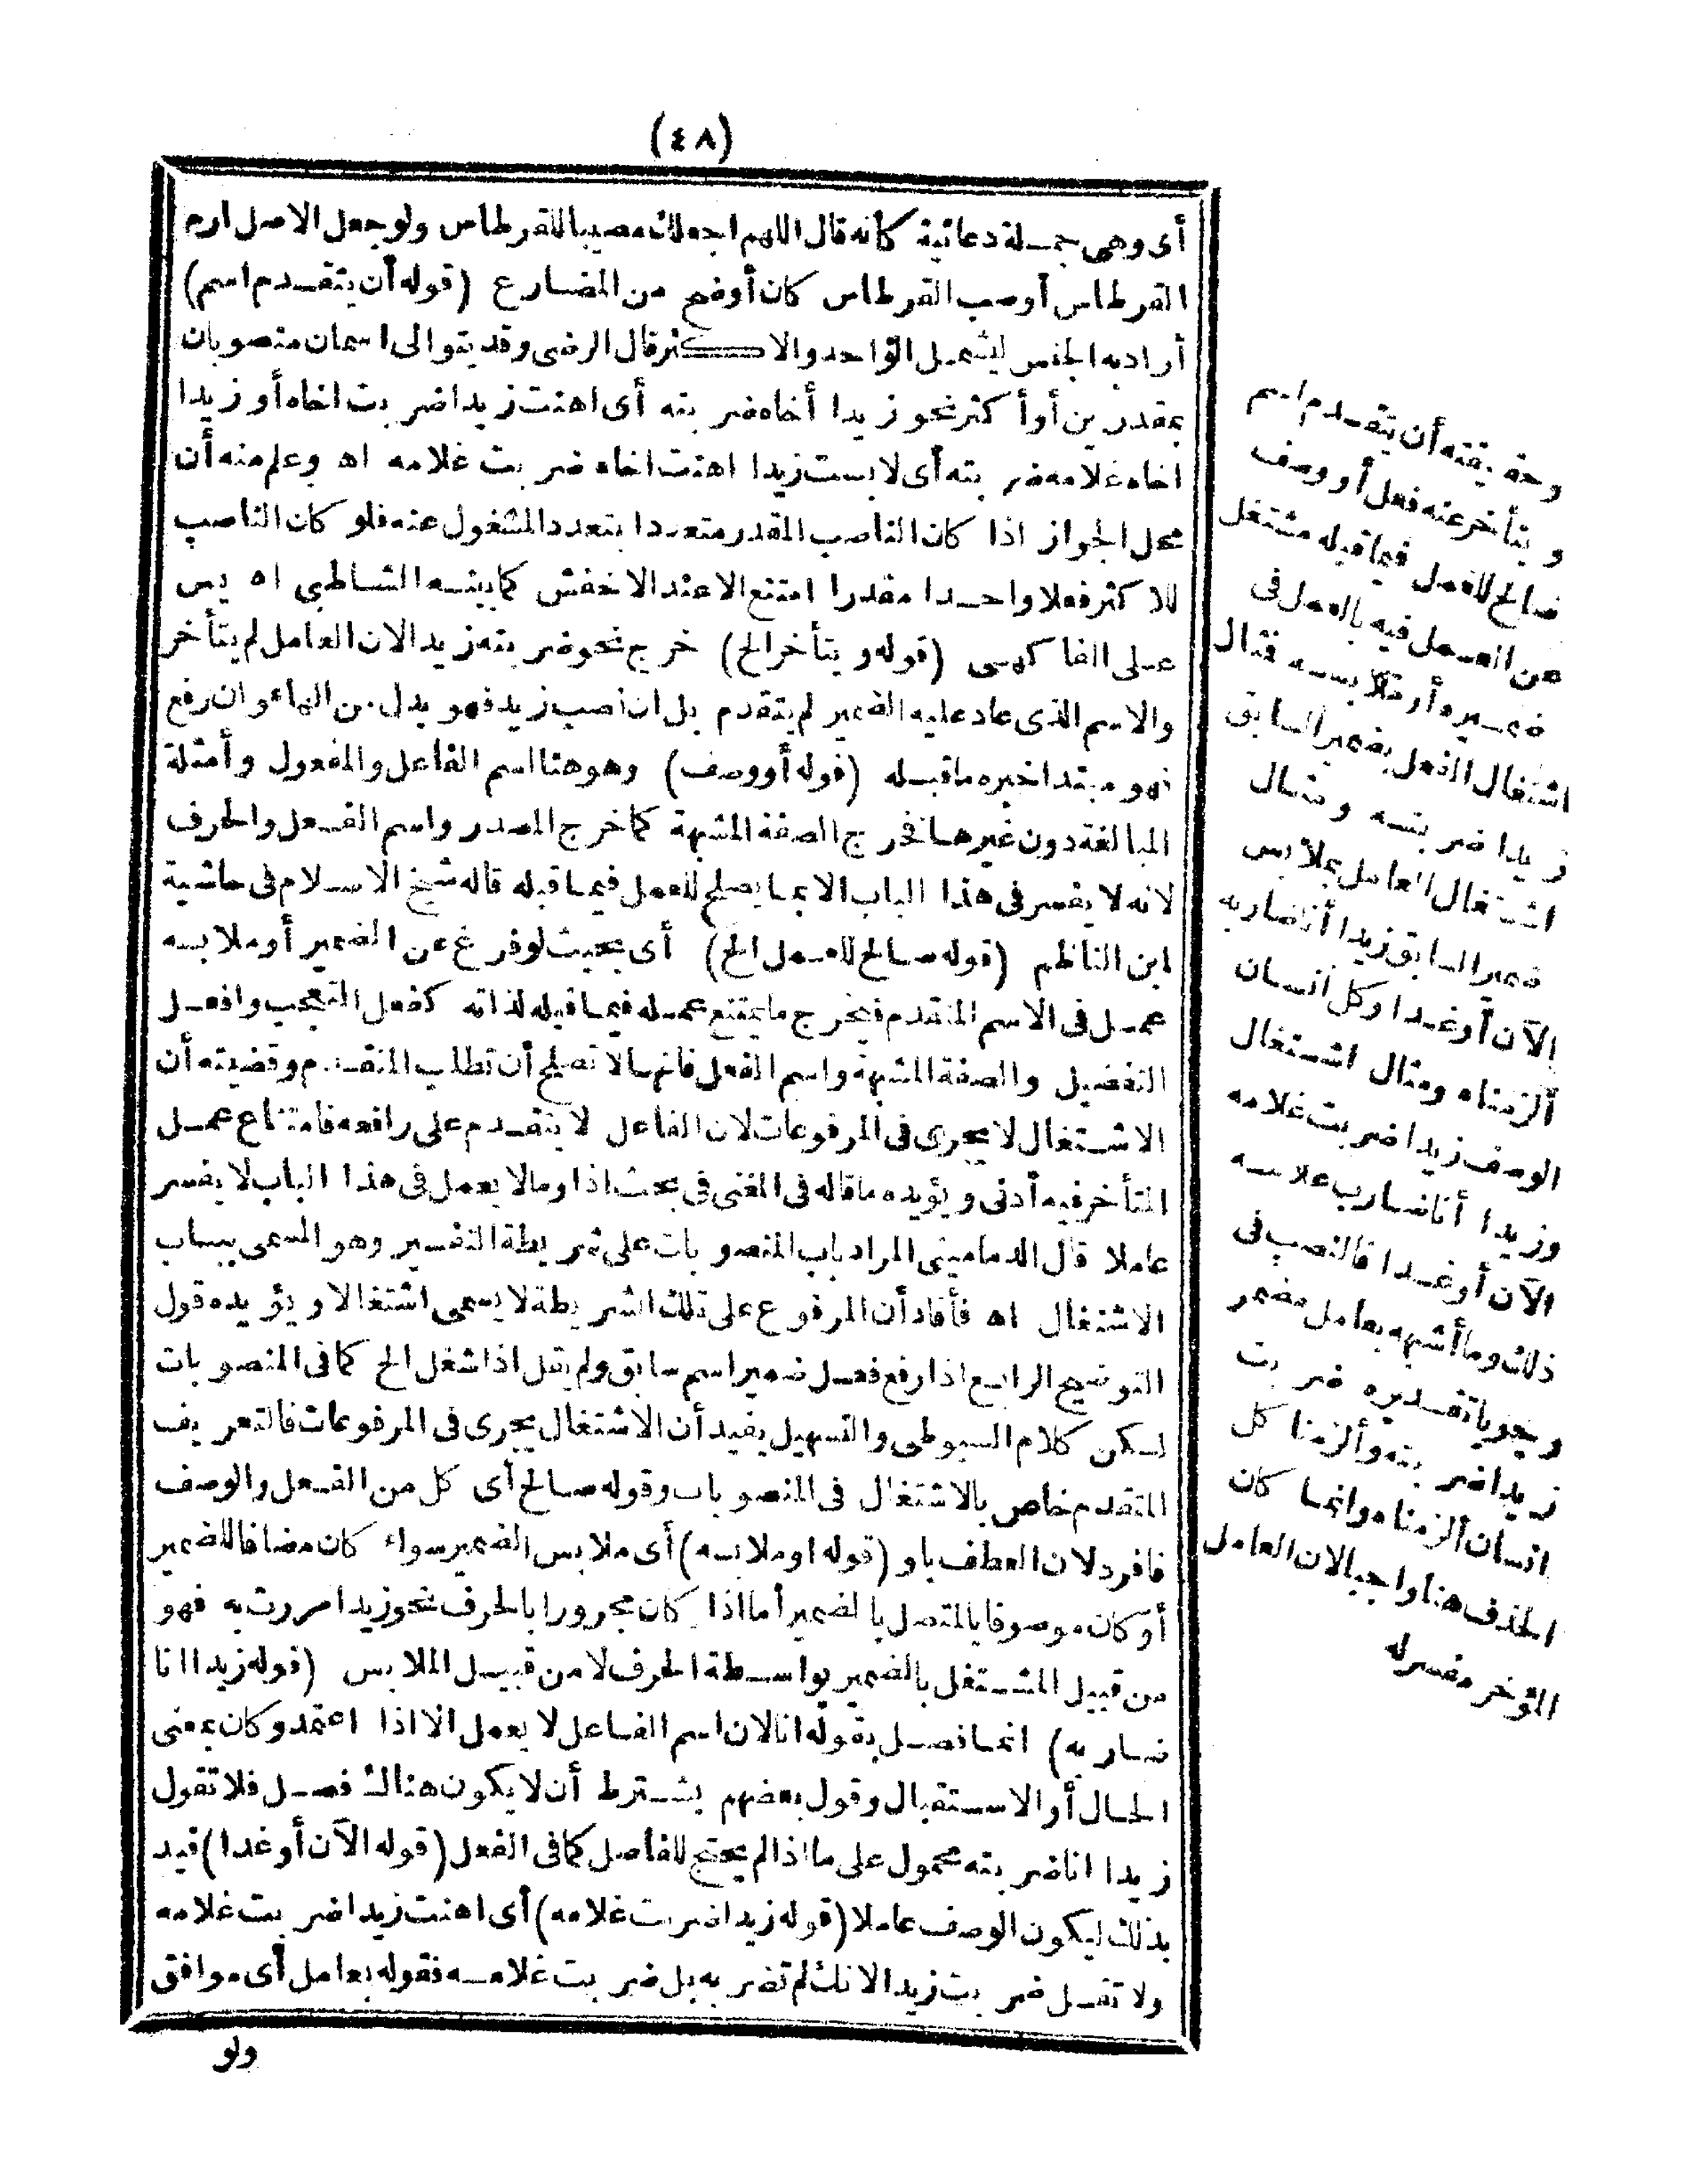 (٤٨)
أى وهى جمـلة دعائية كأنه قال اللهم اجعلك مصيبا للقرطاس ولو جعل الاصل ارم
القرطاس أوصب القرطاس كان أوضح من المضارع (قوله أن يتقـدم اسم)
أراد به الجنس ليشمـل الواحد والاكثر قال الرضى وقد يتوالى اسمان منصوبان
بمقدرين أو أكثر نحو زيدا أخاه ضربته أى اهنت زيدا ضربت اخاه أو زيدا
اخاه غلامه ضربته أى لابست زيدا اهنت اخاه ضربت غلامه اه وعلم منه أن
محل الجواز اذا كان الناصب المقدر متعددا بتعدد المشغول عنه فلو كان الناصب
للاكثر فعلا واحـدا مقدرا امتنع الا عند الاخفش كما بينـه الشاطبى اه يس
عـلى الفاكهى (قوله ويتأخر الخ) خرج نحو ضربته زيدا لان العامل لم يتأخر
والاسم الذى عاد عليه الضمير لم يتقدم بل ان نصب زيد فهو بدل من الهاء وان رفع
فهو مبتدا خبره ما قبـله (قوله أو وصف) وهو هنا اسم الفاعل والمفعول وأمثلة
المبالغة دون غيرهـا فخرج الصفة المشبهة كما خرج المصدر واسم الفـعل والحرف
لانه لا يفسر فى هذا الباب الا بما يصلح للعمل فيما قبله قاله شيخ الاسـلام فى حاشية
ابن الناظم (قوله صـالح للعـمل الخ) أى بحيث لو فرغ عن الضمير أو ملابسه
عمـل فى الاسم المتقدم فيخرج ما يمتنع عمـله فيما قبله لذاته كفعل التعجب وافعـل
التفضيل والصفة المشبهة واسم الفعل فانها لا تصلح أن تطلب المتقـدم وقضيته أن
الاشـتغال لا يجرى فى المرفوعات لان الفاعل لا يتقـدم على رافعه فامتناع عمـل
المتأخر فيه أدنى ويؤيده ما قاله فى المغنى فى بحث اذا وما لا يعمل فى هذا الباب لا يفسر
عاملا قال الدمامينى المراد باب المنصوبات على شريطة التفسير وهو المسمى ببـاب
الاشتغال اه فأفاد أن المرفوع على تلك الشريطة لا يسمى اشتغالا ويؤيده قول
التوضيح الرابـع اذا رفع فعـل ضمير اسم سابق ولم يقل اذا شغل الخ كما فى المنصوبات
لـكن كلام السيوطى والتسهيل يفيد أن الاشتغال يجرى فى المرفوعات فالتعريف
المتقدم خاص بالاشتغال فى المنصوبات وقوله صـالح أى كل من الفـعل والوصف
فافرد لان العطف باو (قوله او ملابسه) أى ملابس الضمير سواء كان مضافا للضمير
أو كان موصوفا بالمتصل بالضمير أما اذا كان مجرورا بالحرف نحو زيدا مررت به فهو
من قبيل المشـتغل بالضمير بواسـطة الحرف لا من قبيـل الملابس (قوله زيدا انا
ضـاربه) انمـا فصـل بقوله انا لان اسم الفـاعل لا يعمل الا اذا اعتمد وكان بمعنى
الحـال أو الاسـتقبال وقول بعضهم يشـترط أن لا يكون هناك فصـل فلا تقول
زيدا انا ضربته محمول على ما اذا لم يحتج للفاصل كما فى الفعل (قوله الآن أو غدا) قيد
بذلك ليكون الوصف عاملا (قوله زيدا ضربت غلامه) أى اهنت زيدا ضربت غلامه
ولا تقـل ضربت زيدا لانك لم تضربه بل ضربت غلامـه فقوله بعامل أى موافق
ولو
وحقيقته أن يتقـدم اسم
ويتأخر عنه فعل أو وصف
صالح للعمل فيما قبله مشتغل
عن العـمل فيه بالعمل فى
ضمـيره أو ملابسـه فمثال
اشتغال الفعل بضمير السابق
زيدا ضربتـه ومثـال
اشـتغال العامل بملابس
ضمير السابق زيدا أنا ضاربه
الآن أو غـدا وكل انسان
ألزمناه ومثال اشـتغال
الوصف زيدا ضربت غلامه
وزيدا أنا ضارب غلامـه
الآن أو غـدا فالنصب فى
ذلك وما أشبهه بعامل مضمر
وجوبا تقـديره ضربت
زيدا ضربته وألزمنا كل
انسان ألزمناه وانمـا كان
الحذف هنا واجبا لان العامل
المؤخر مفسر له